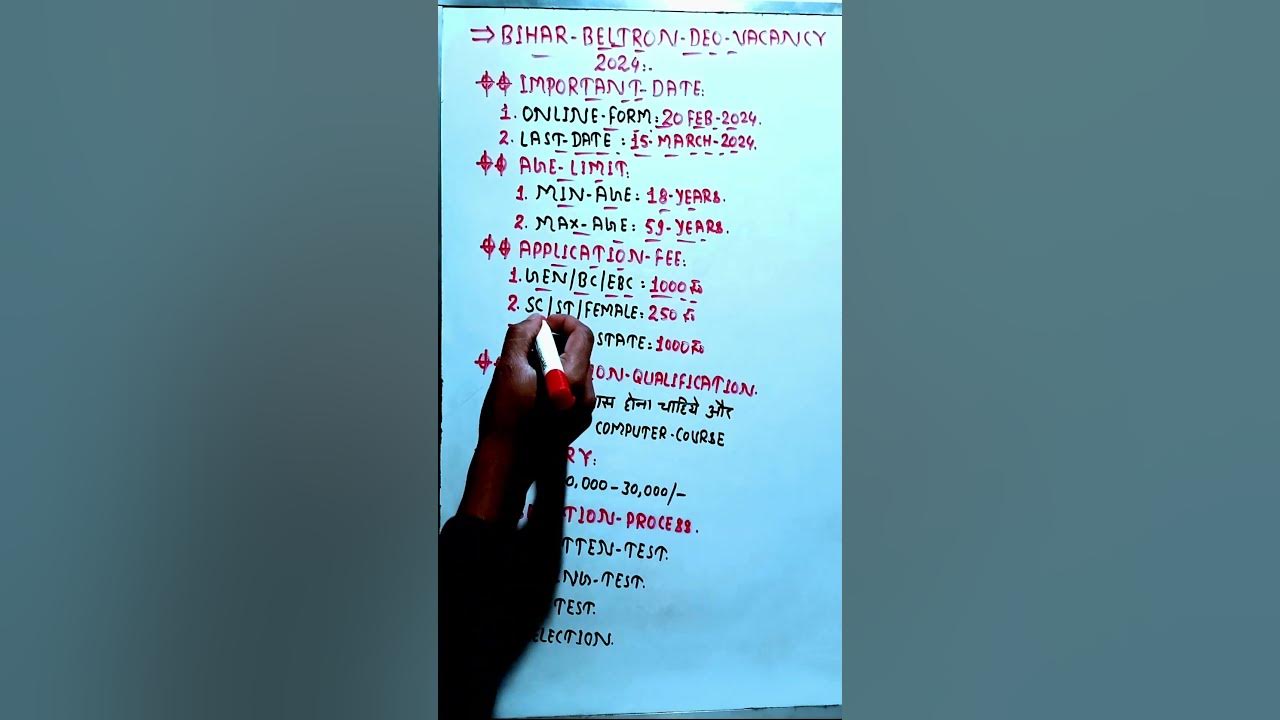 ⇒ BIHAR-BELTRON-DEO-VACANCY
2024:-
IMPORTANT-DATE:
1. ONLINE-FORM: 20 FEB-2024.
2. LAST-DATE : 15-MARCH-2024.
AGE-LIMIT:
1. MIN-AGE: 18-YEARS.
2. MAX-AGE: 59-YEARS.
APPLICATION-FEE:
1. GEN/BC/EBC: 1000 रु
2. SC/ST/FEMALE: 250 रु
STATE: 1000 रु
ON-QUALIFICATION.
होना चाहिये और
COMPUTER-COURSE
RY:
0,000-30,000/-
TION-PROCESS.
TTEN-TEST.
NG-TEST.
TEST.
ELECTION.